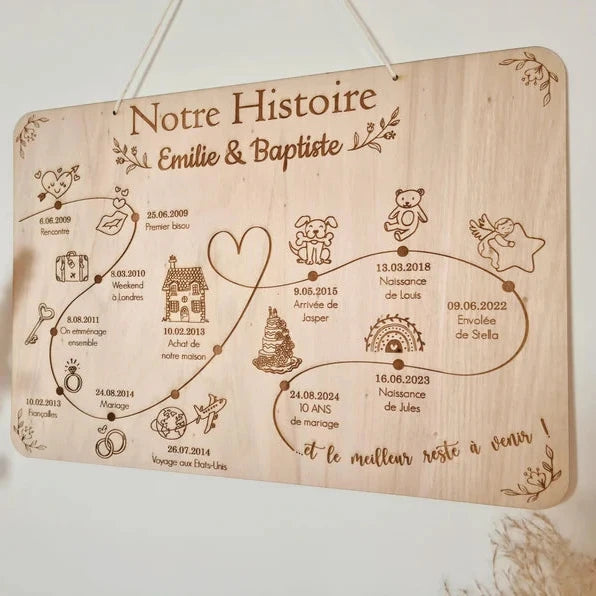 Notre Histoire
Emilie & Baptiste
6.06.2009
Rencontre
25.06.2009
Premier bisou
8.03.2010
Weekend
à Londres
8.08.2011
On emménage
ensemble
10.02.2013
Fiançailles
24.08.2014
Mariage
26.07.2014
Voyage aux Etats-Unis
10.02.2013
Achat de
notre maison
9.05.2015
Arrivée de
Jasper
13.03.2018
Naissance
de Louis
09.06.2022
Envolée
de Stella
16.06.2023
Naissance
de Jules
24.08.2024
10 ANS
de mariage
...et le meilleur reste à venir !